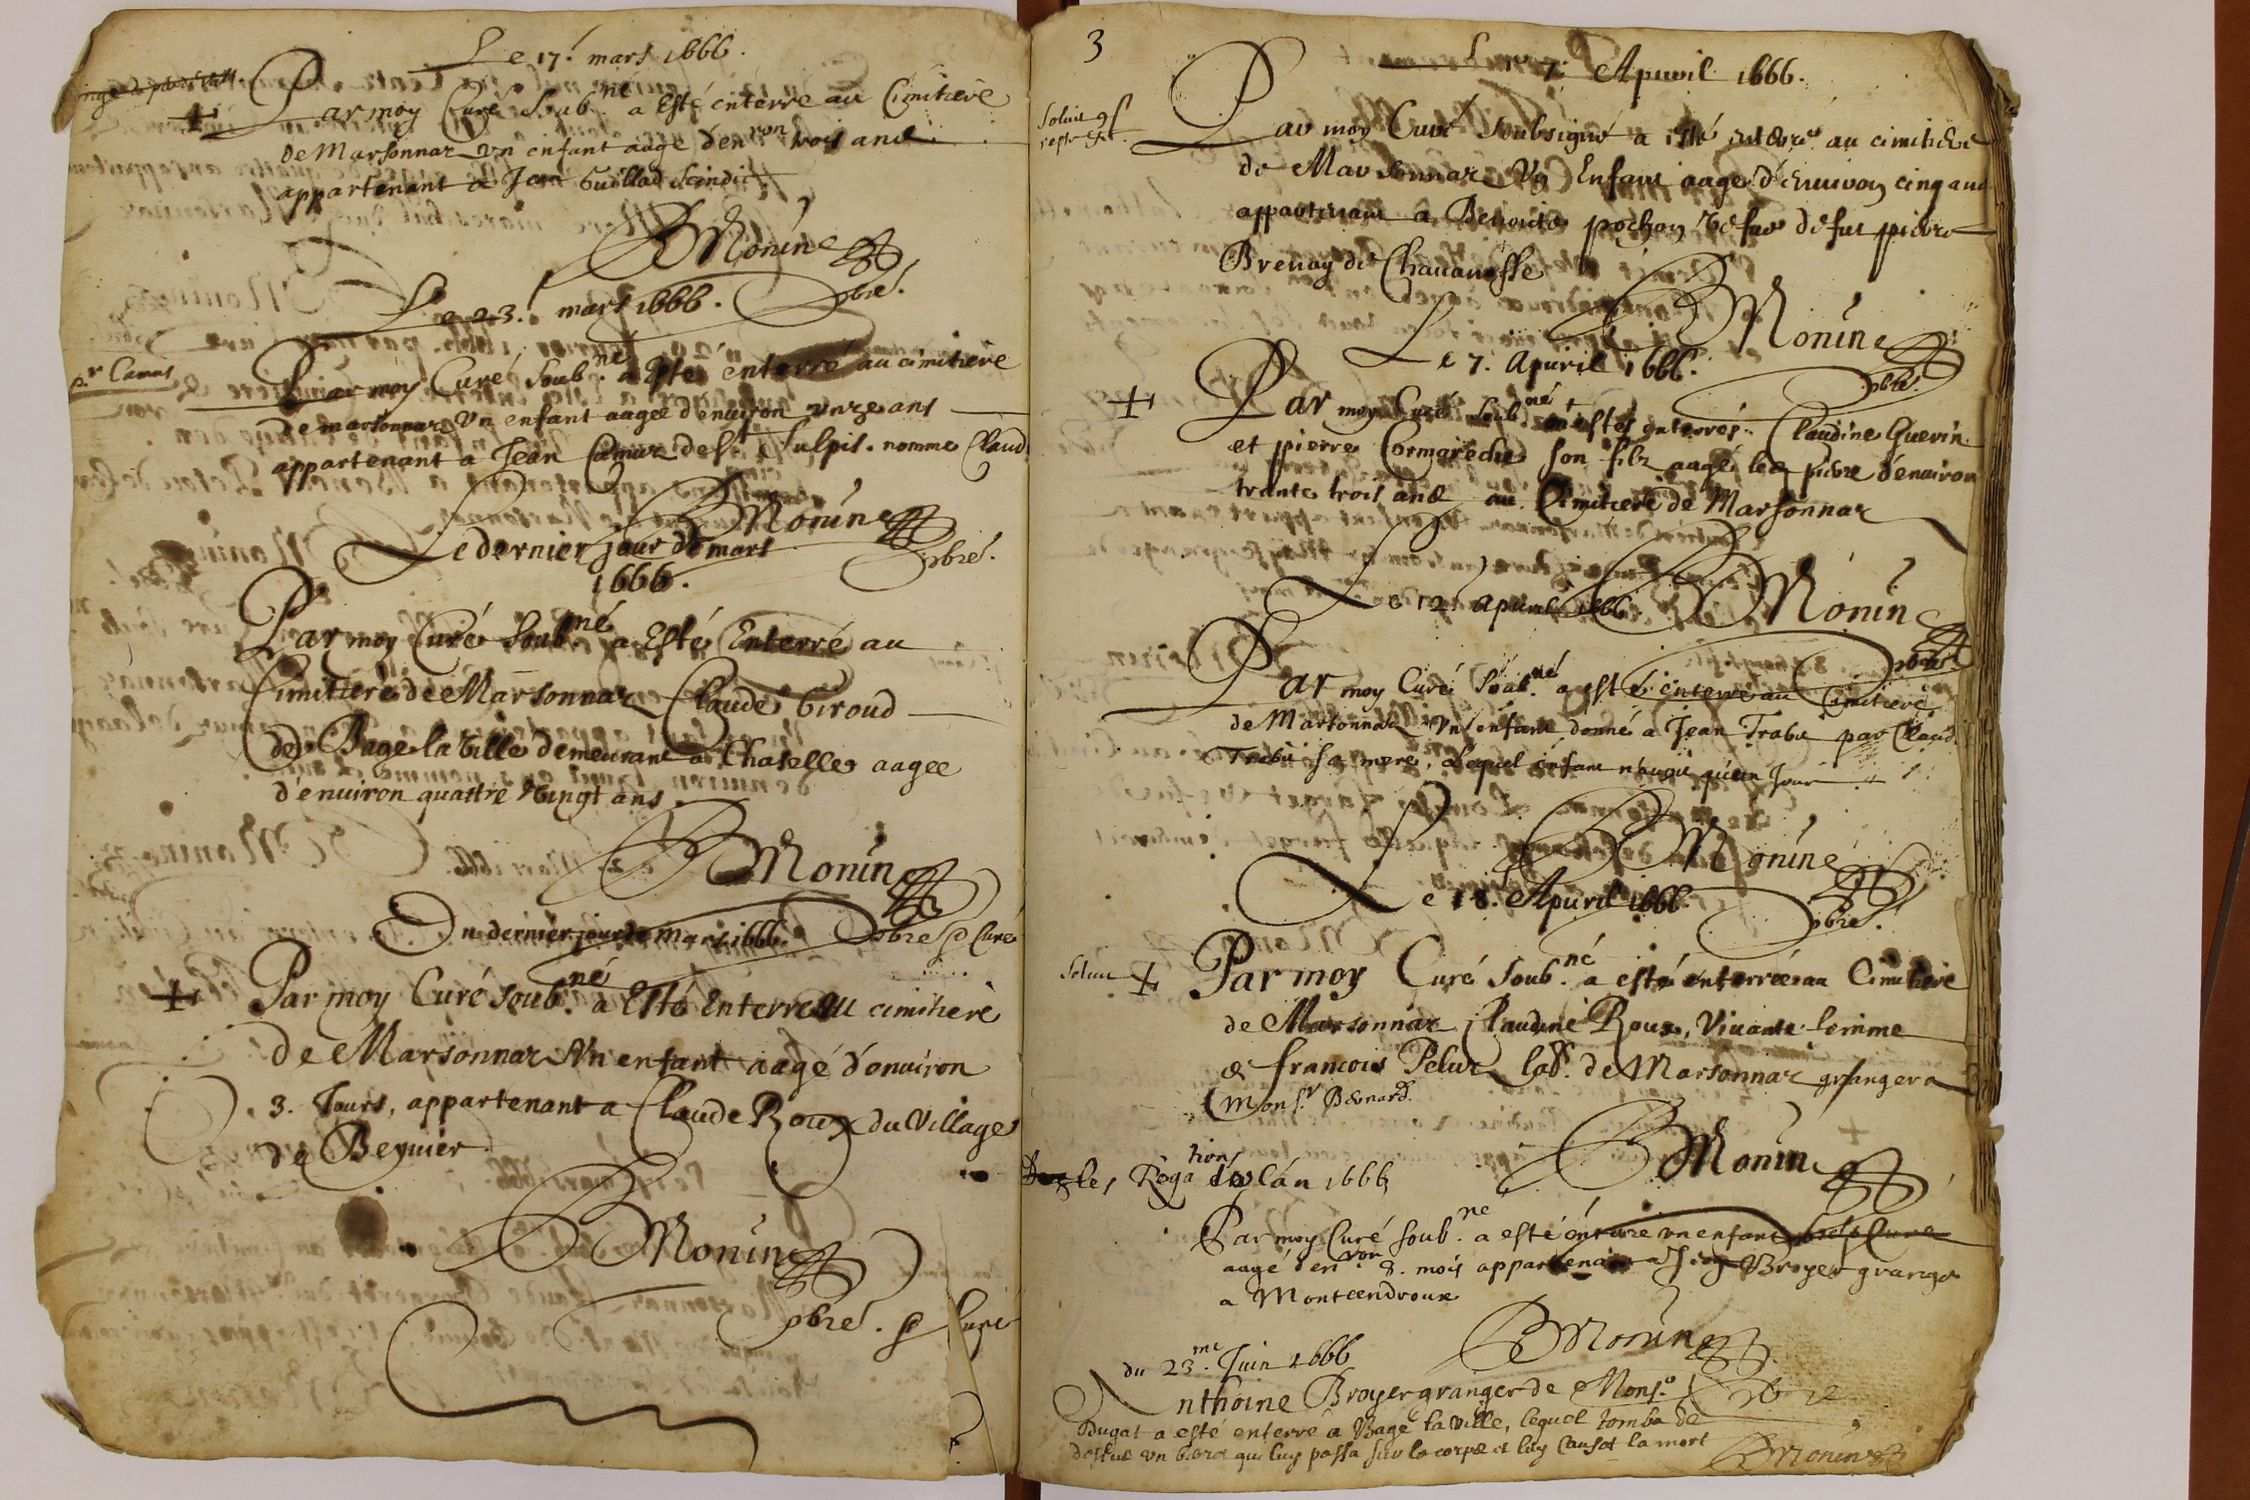 Le 17.e mars 1666.
Par moy Curé Soub.né a Esté enterre au Cimitiere
de Marsonnaz vn enfant aagé d'en.ron trois ans
appartenant a Jean Guillad scindic
BMonin
pbre.
Le 23.e mars 1666.
Par moy Curé soub.né a Esté enterré au cimitiere
de marsonnaz Vn enfant aagee d'enuiron vnze ans
appartenant a Jean Camuz de St Sulpis. nomme Claud
BMonin
pbre.
Le dernier jour de mars
1666.
Par moy Curé Soub.né a Esté Enterré au
Cimitiere de Marsonnaz Claude Giroud
de Bage la Ville demeurant a Chatelles aagee
d'enuiron quattre Vingt ans.
BMonin
pbre & Curé
Du dernier jour de mars 1666.
Par moy Curé soub.né a Esté Enterre au cimitiere
de Marsonnaz Vn enfant aagé d'enuiron
3. Jours, appartenant a Claude Roux du Village
de Beynier
BMonin
pbre. & Curé
3
Le 7.e Apuril 1666.
Par moy Curé Soubsigné a esté enterré au cimitiere
de Marsonnaz Vn Enfant aagé d'enuiron cinq ans
appartenant a Benoite pochon Vefue de fut pierre
Brenay de Chauanosse
BMonin
pbre.
Le 7. Apuril 1666.
Par moy Curé Soub.né ont estés enterrés Claudine Guerin
et pierre Cormareche son filz aagé led pierre d'enuiron
trante trois ans au Cimitiere de Marsonnaz
BMonin
pbre
Le 12.e Apuril 1666
Par moy Curé Soub.né a esté enterre au Cimitiere
de Marsonnaz Vn enfant donné a Jean Trabu par Claud.
Trabu sa mere, lequel enfant n'auoit qu'un Jour
BMonin
pbre.
Le 18. Apuril 1666.
Solui
Par moy Curé Soub.né a esté enterrée au Cimitiere
de Marsonnaz Claudine Roux, Viuante femme
a francois Peluz lab.r de Marsonnaz granger a
Mons.r Bernard.
BMonin
les Rogations de lán 1666
Par moy Curé soub.né a esté énterré vn enfant
aagé d'en.ron 8. mois appartenant a Broyer granger
a Montcendroux
BMonin
pbre
du 23.me Juin 1666
Anthoine Broyer granger de Mons.r
Dugat a esté enterré a Bagé la Ville, lequel tomba de
dessus vn barot qui luy passa sur le corps et luy causat la mort
BMonin